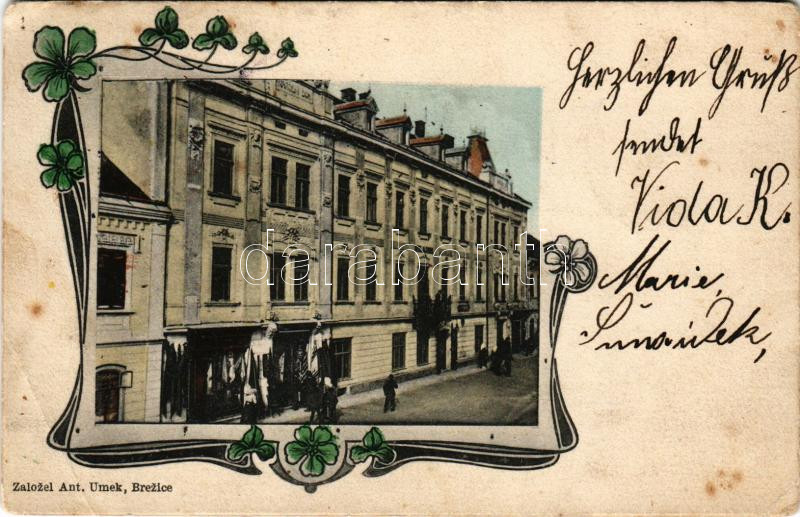 Herzlichen Gruß
sendet
Vida K.
Marie
darabanth
Založel Ant. Umek, Brežice